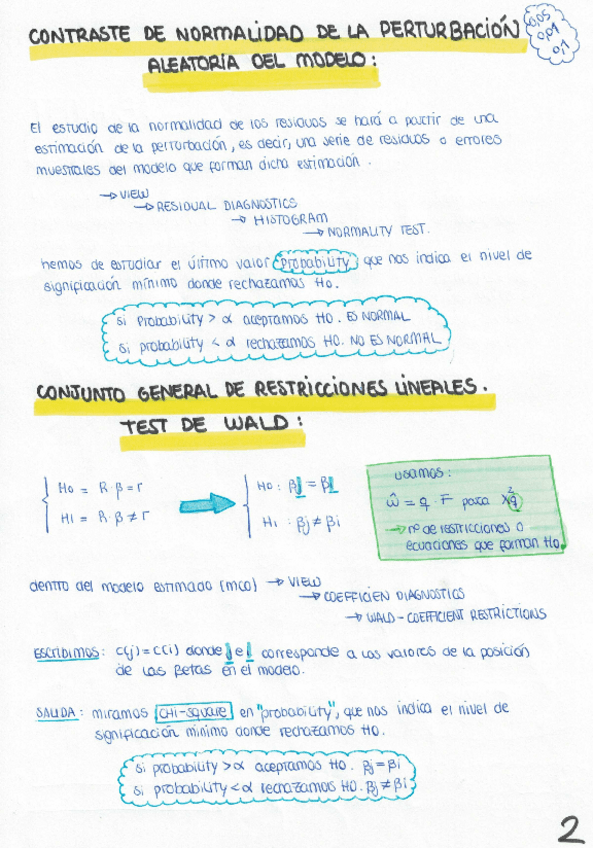 CONTRASTE DE NORMALIDAD DE LA PERTURBACIÓN
ALEATORIA DEL MODELO:
0,05
0,01
0,1
El estudio de la normalidad de los residuos se hará a partir de una
estimación de la perturbación, es decir, una serie de residuos o errores
muestrales del modelo que forman dicha estimación.
→ VIEW
→ RESIDUAL DIAGNOSTICS
→ HISTOGRAM
→ NORMALITY TEST.
hemos de estudiar el último valor (probability) que nos indica el nivel de
significación mínimo donde rechazamos H0.
si Probability > α aceptamos H0. ES NORMAL
si probability < α rechazamos H0. NO ES NORMAL
CONJUNTO GENERAL DE RESTRICCIONES LINEALES.
TEST DE WALD:
H0 = R·β = r
H1 = R·β ≠ r
H0: βj = βi
H1: βj ≠ βi
usamos:
ŵ = q · F para χ²q
→ nº de restricciones o
ecuaciones que forman H0.
dentro del modelo estimado (MCO) → VIEW
→ COEFFICIEN DIAGNOSTICS
→ WALD-COEFFICIENT RESTRICTIONS
ESCRIBIMOS: C(j) = C(i) donde j e i corresponde a los valores de la posición
de las Betas en el modelo.
SALIDA: miramos CHI-SQUARE en "probability", que nos indica el nivel de
significación mínimo donde rechazamos H0.
si probability > α aceptamos H0. βj = βi
si probability < α rechazamos H0. βj ≠ βi
2